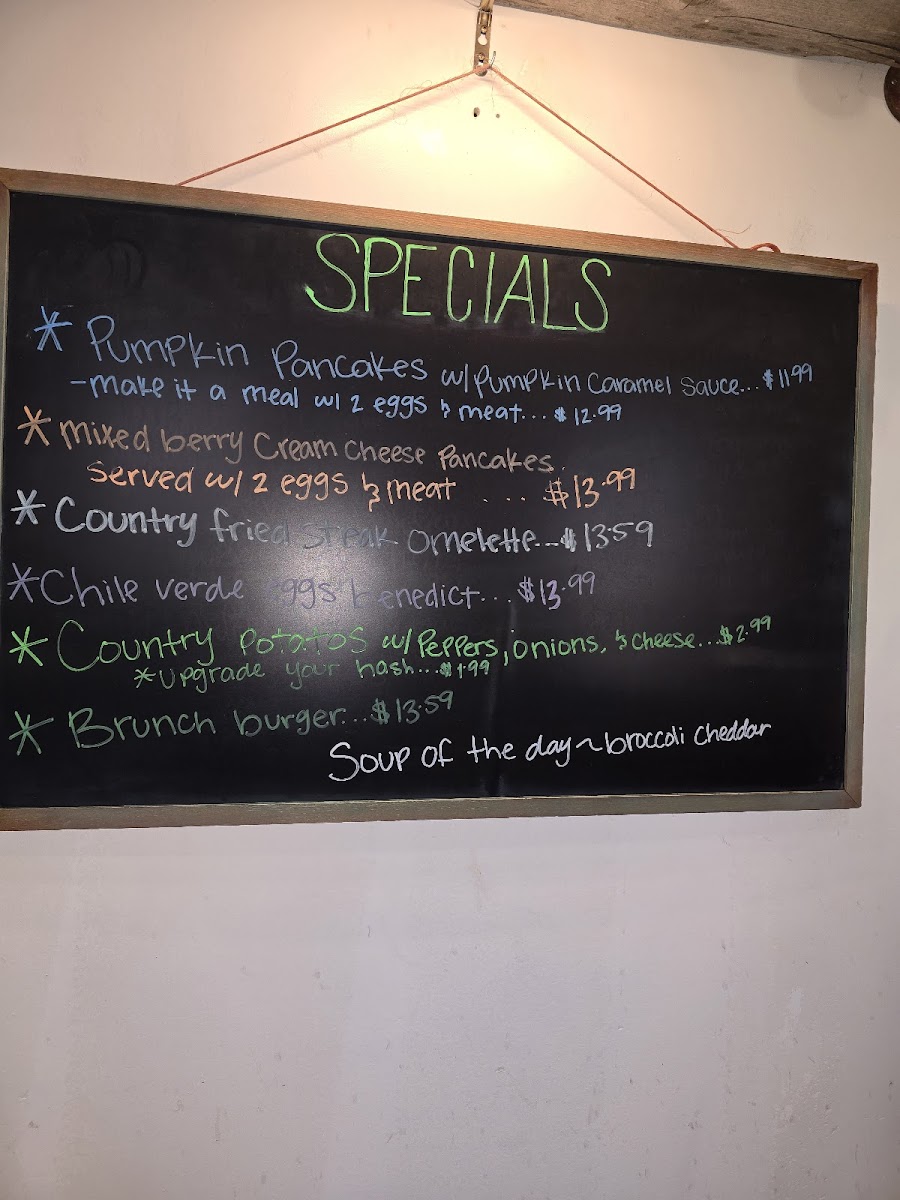 SPECIALS
* Pumpkin Pancakes w/ Pumpkin Caramel Sauce...$11.99
-make it a meal w/ 2 eggs & meat...$12.99
* mixed berry Cream Cheese Pancakes
Served w/ 2 eggs & meat ....$13.99
* Country fried steak omelette...$13.59
* Chile verde eggs benedict...$13.99
* Country Potatos w/ Peppers, onions, & cheese...$2.99
* upgrade your hash...$1.99
* Brunch burger...$13.59
Soup of the day ~ broccoli cheddar